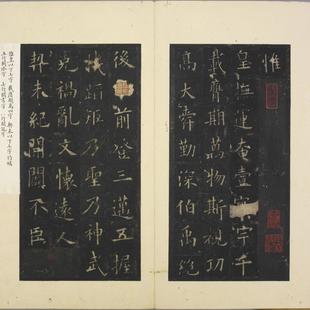 惟
皇撫運奄壹宇千
載膺期萬物斯覩功
高大舜勤深伯禹絕
後前登三邁五握
機蹈矩乃聖乃神武
克禍亂文懷遠人
契未紀開闢不臣